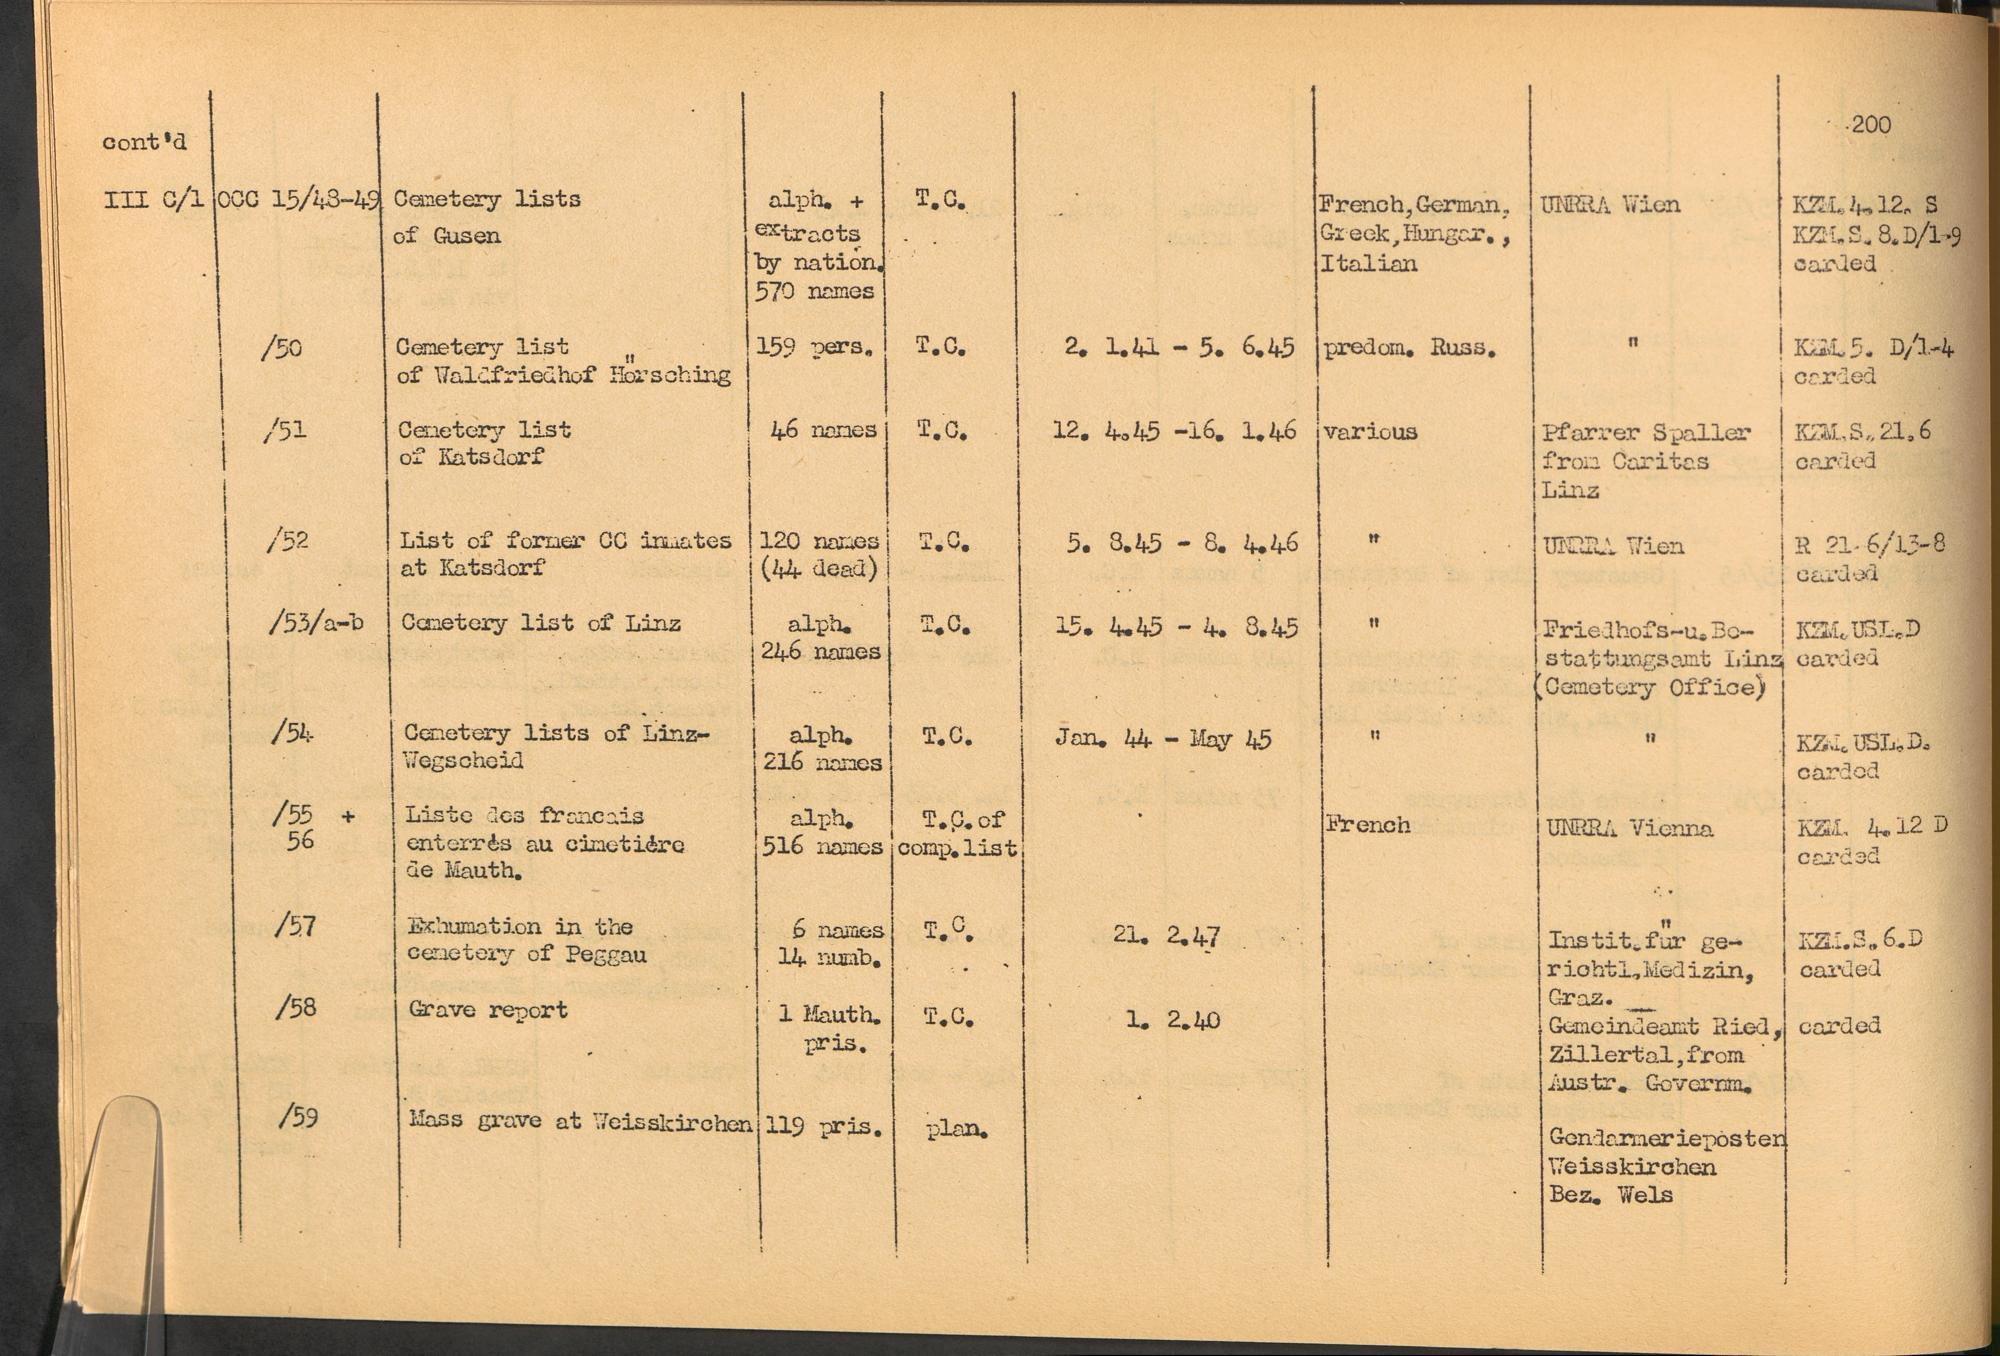 200
cont'd
III C/1 OCC 15/48-49 Cemetery lists alph. + T.C. French,German, UNRRA Wien KZM.4.12. S
of Gusen extracts Greek,Hungar., KZM.S.8.D/1-9
by nation. Italian carded
570 names
/50 Cemetery list 159 pers. T.C. 2. 1.41 - 5. 6.45 predom. Russ. " KZM.5. D/1-4
of Waldfriedhof Hörsching carded
/51 Cemetery list 46 names T.C. 12. 4.45 -16. 1.46 various Pfarrer Spaller KZM.S.21.6
of Katsdorf from Caritas carded
Linz
/52 List of former CC inmates 120 names T.C. 5. 8.45 - 8. 4.46 " UNRRA Wien R 21.6/13-8
at Katsdorf (44 dead) carded
/53/a-b Cemetery list of Linz alph. T.C. 15. 4.45 - 4. 8.45 " Friedhofs-u.Be- KZM.USL.D
246 names stattungsamt Linz carded
(Cemetery Office)
/54 Cemetery lists of Linz- alph. T.C. Jan. 44 - May 45 " " KZM.USL.D.
Wegscheid 216 names carded
/55 + Liste des francais alph. T.C.of French UNRRA Vienna KZM. 4.12 D
56 enterrés au cimetière 516 names comp.list carded
de Mauth.
/57 Exhumation in the 6 names T.C. 21. 2.47 Instit.für ge- KZM.S.6.D
cemetery of Peggau 14 numb. richtl.Medizin, carded
Graz.
/58 Grave report 1 Mauth. T.C. 1. 2.40 Gemeindeamt Ried, carded
pris. Zillertal,from
Austr. Governm.
/59 Mass grave at Weisskirchen 119 pris. plan. Gendarmerieposten
Weisskirchen
Bez. Wels